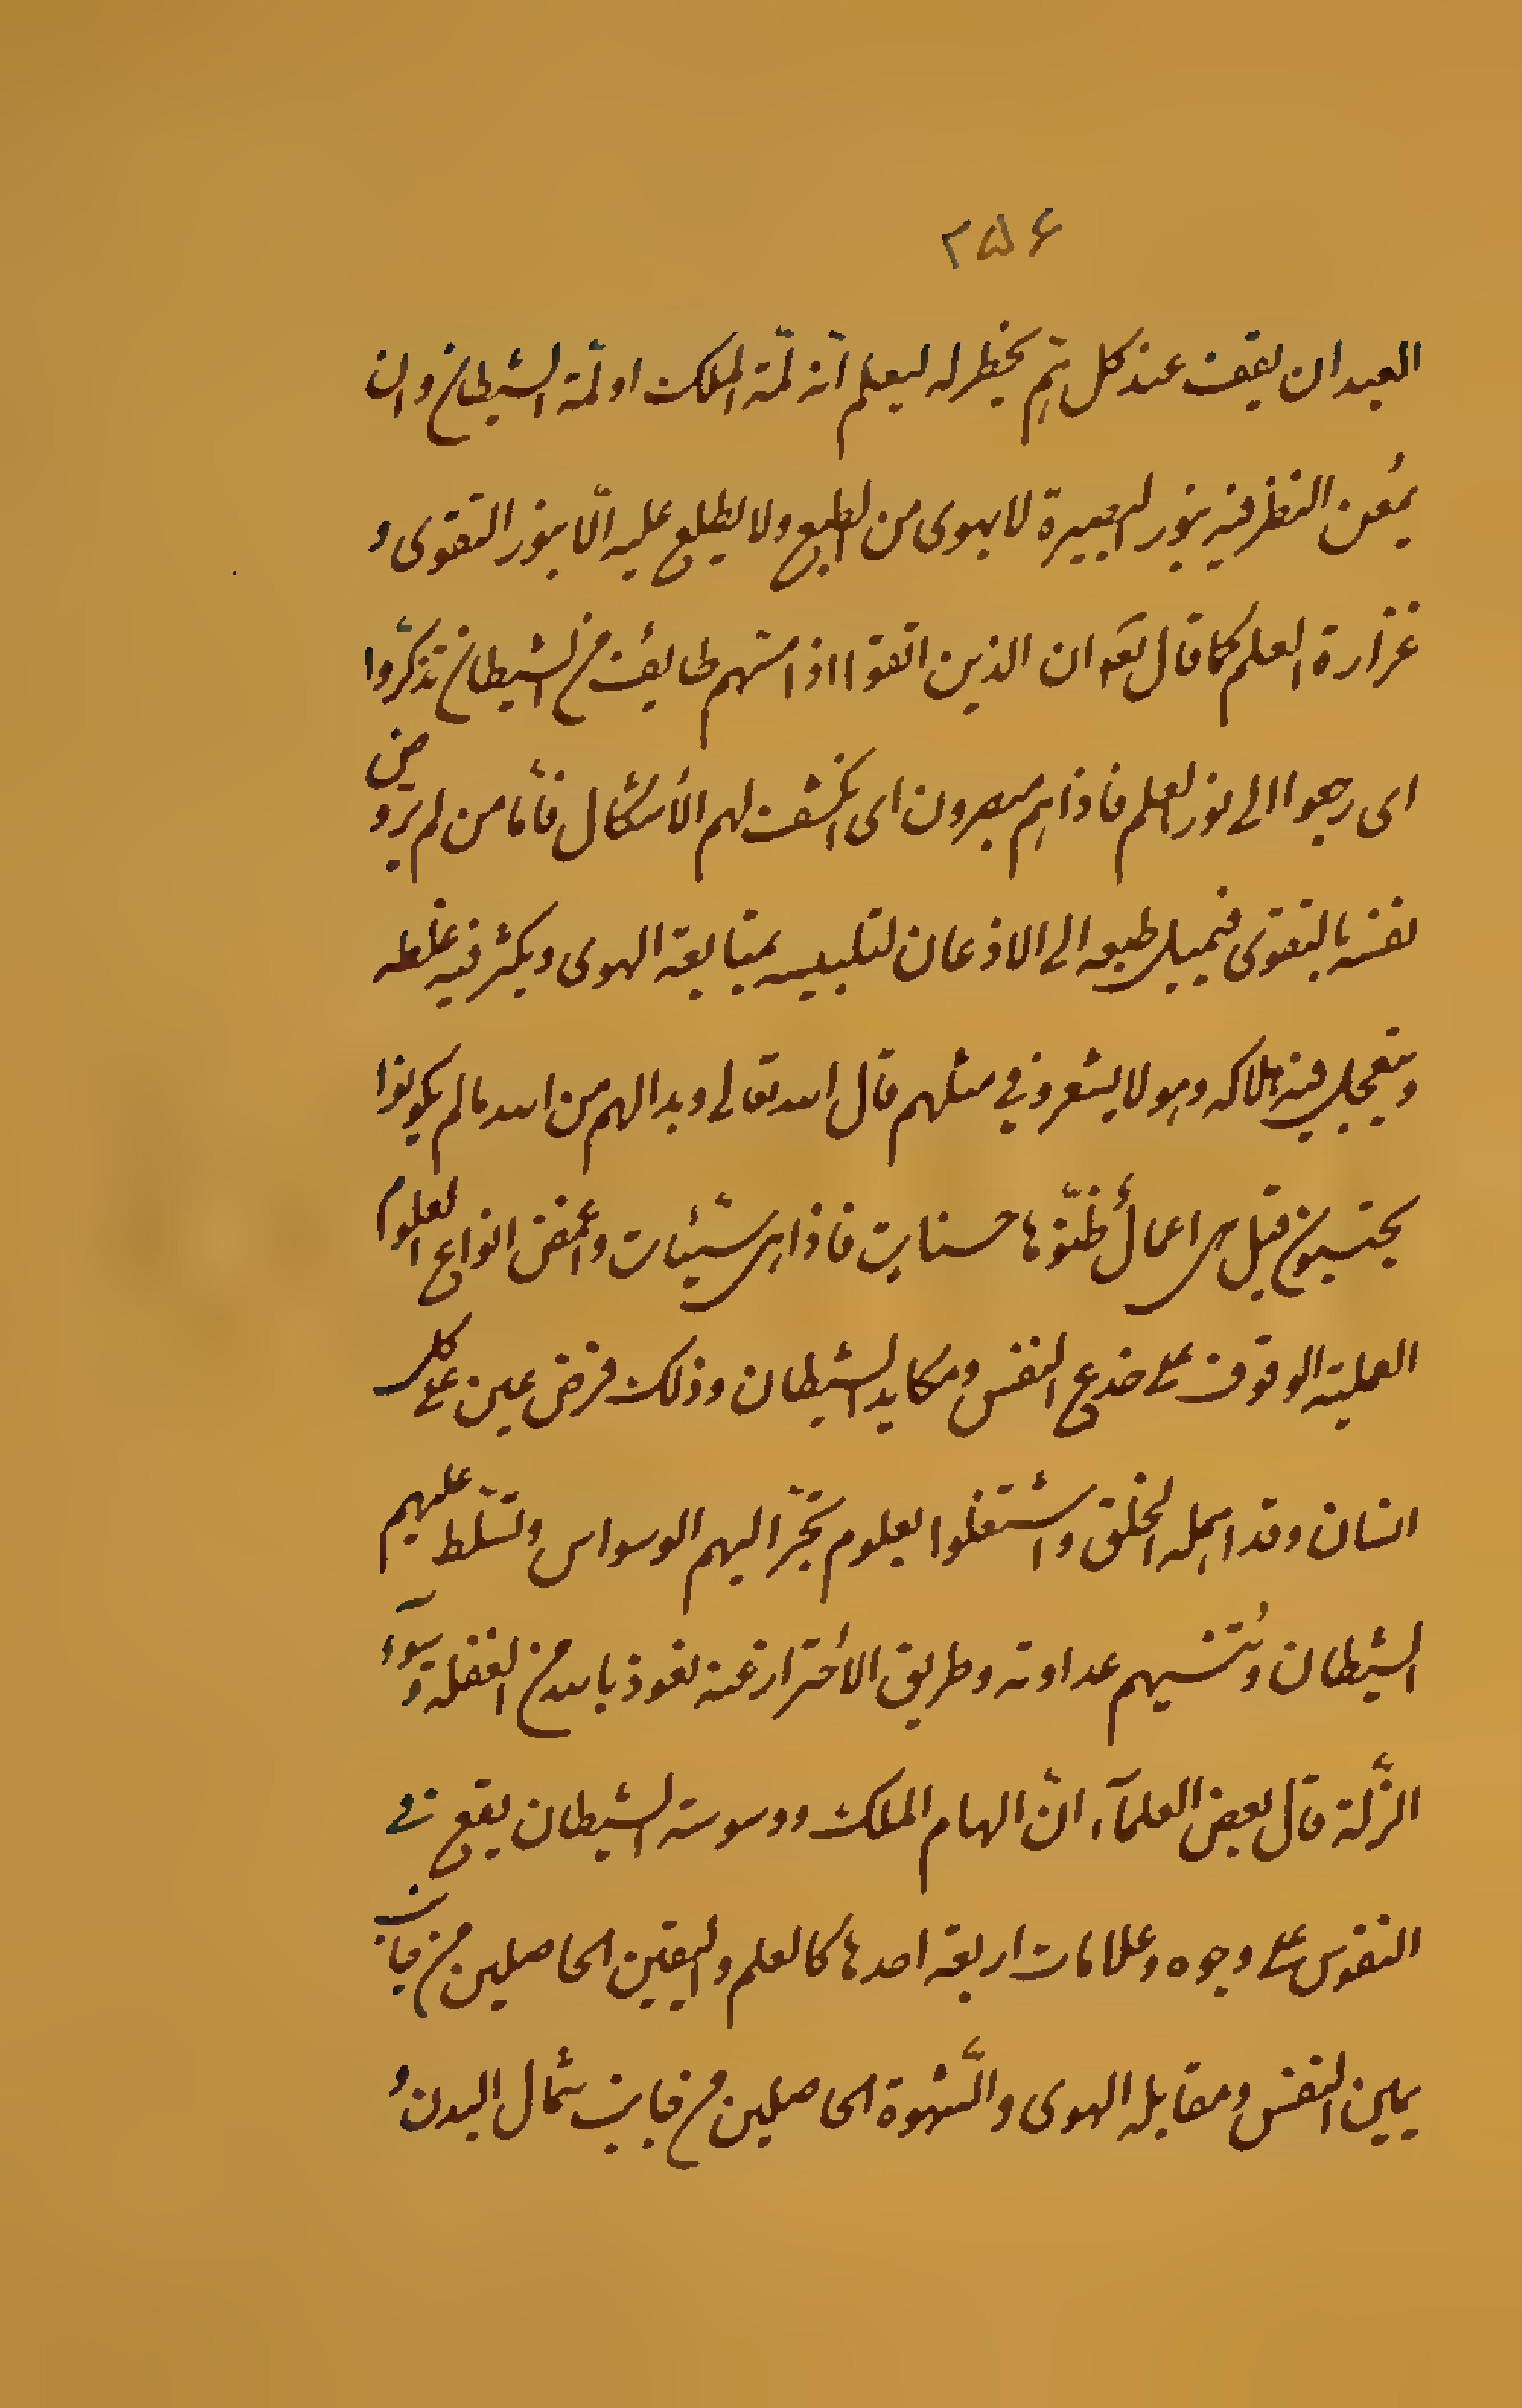 ٣۵۶
العبد ان يقف عند كل همّ يخطر له ليعلم انّه لمّة الملك او لمّة الشيطان و ان
يُمعن النظر فيه بنور البصيرة لا بهوى من الطبع ولا يطلع عليه الّا بنور التقوى و
غزارة العلم كما قال تعَ ان الذين اتقوا اذا مسّهم طايف من الشيطان تذكّروا
اى رجعوا الى نور العلم فاذا هم مبصرون اى انكشف لهم الأشكال فأمّا من لم يرو ض
نفسه بالتقوى فيميل طبعه الى الاذعان لتلبيسه بمتابعة الهوى ويكثر فيه غلطه
ويتعجل فيه هلاكه وهو لا يشعر وفي مثلهم قال الله تعالى وبدا لهم من الله ما لم يكونوا
يحتسبون قيل هى اعمالٌ ظنّوها حسنات فاذا هى سيّئات وأغمض انواع العلوم
العملية الوقوف على خدع النفس ومكايد الشيطان وذلك فرض عين على كل
انسان وقد اهمله الخلق واشتغلوا بعلوم تجرّ اليهم الوسواس وتسلّط عليهم
الشيطان وتُنسيهم عداوته وطريق الأحتراز عنه نعوذ بالله من الغفلة و سوٓء
الزّلة قال بعض العلمآء انّ الهام الملك ووسوسة الشيطان يقع فى
النفوس على وجوه وعلامات اربعة احدها كالعلم واليقين الحاصلين من جانب
يمين النفس ومقابله الهوى والشّهوة الحاصلين من جانب شمال البدن و